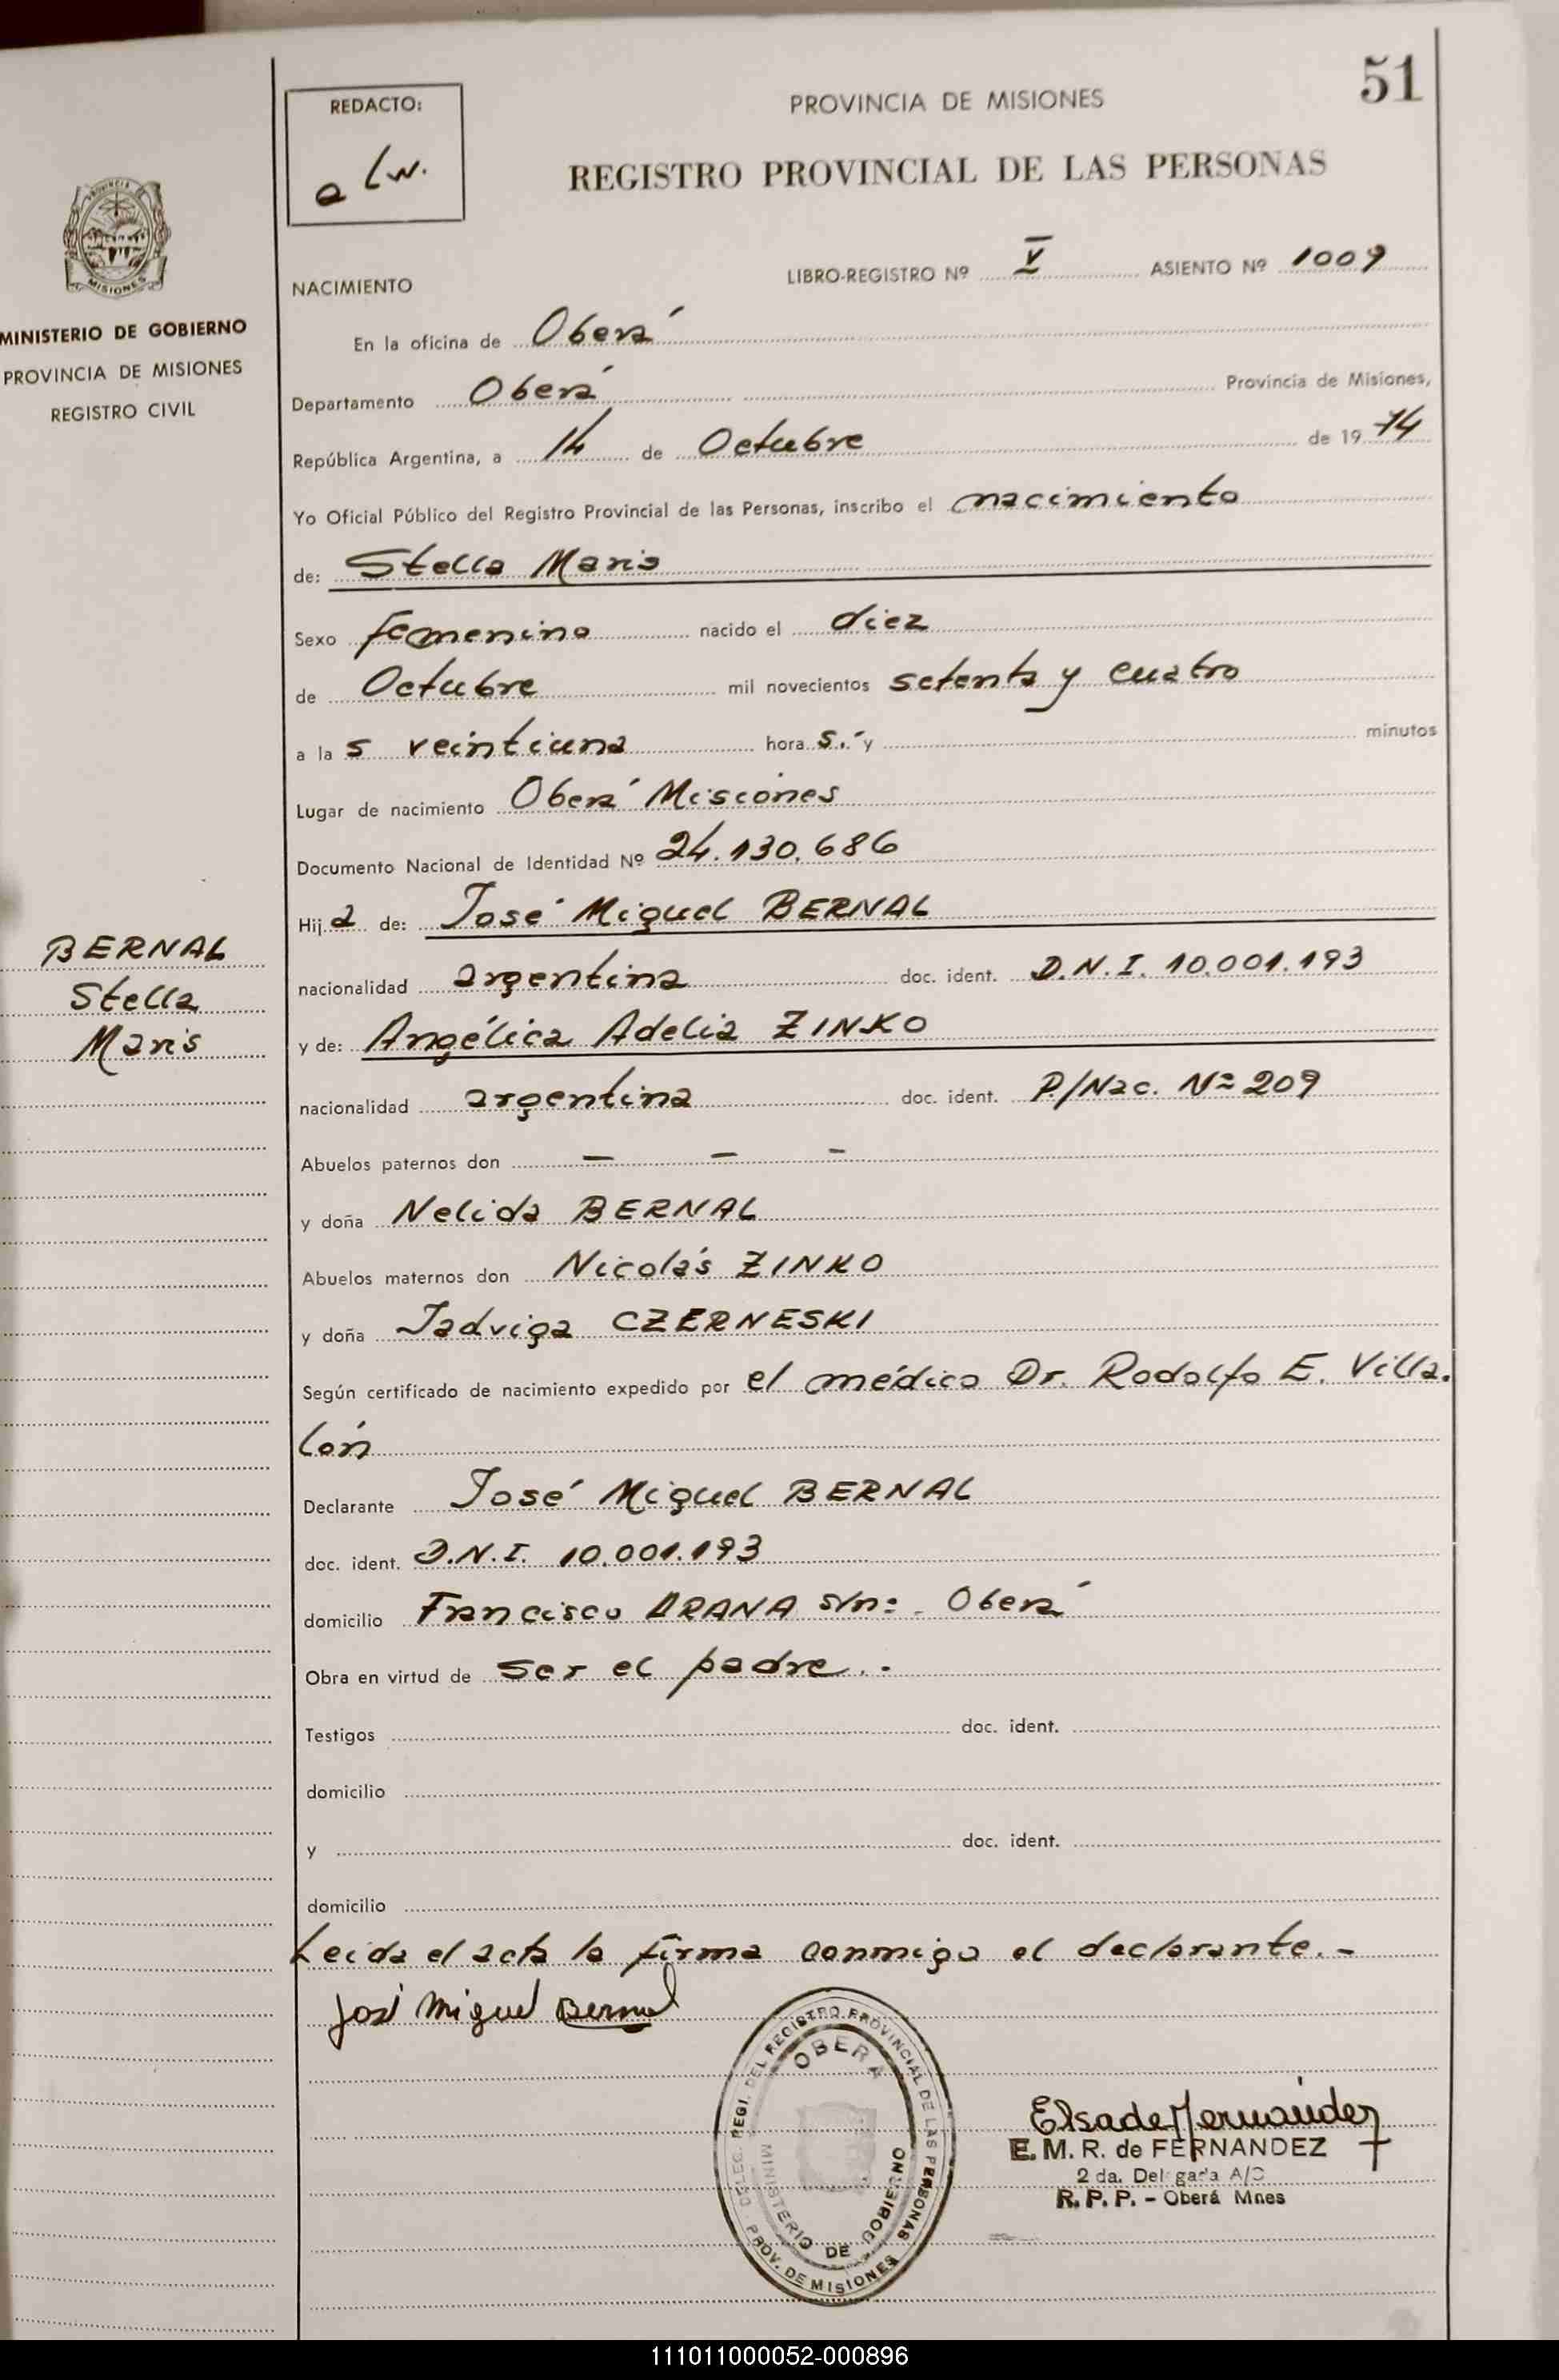 51
REDACTO:
PROVINCIA DE MISIONES
REGISTRO PROVINCIAL DE LAS PERSONAS
PROVINCIA
MISIONES
MINISTERIO DE GOBIERNO
PROVINCIA DE MISIONES
REGISTRO CIVIL
NACIMIENTO LIBRO-REGISTRO Nº V ASIENTO Nº 1009
En la oficina de Oberá
Departamento Oberá Provincia de Misiones,
República Argentina, a 14 de Octubre de 19 74
Yo Oficial Público del Registro Provincial de las Personas, inscribo el nacimiento
de: Stella Maris
Sexo femenino nacido el diez
de Octubre mil novecientos setenta y cuatro
a la s veintiuna hora s.- y minutos
Lugar de nacimiento Oberá Misiones
Documento Nacional de Identidad Nº 24.130.686
Hij a de: José Miguel BERNAL
nacionalidad argentina doc. ident. D.N.I. 10.001.193
y de: Angélica Adelia ZINKO
nacionalidad argentina doc. ident. P./Nac. Nº 209
BERNAL
Stella
Maris
Abuelos paternos don — — —
y doña Nelida BERNAL
Abuelos maternos don Nicolás ZINKO
y doña Jadviga CZERNESKI
Según certificado de nacimiento expedido por el médico Dr. Rodolfo E. Villa-
lón
Declarante José Miguel BERNAL
doc. ident. D.N.I. 10.001.193
domicilio Francisco ARANA s/n: . Oberá
Obra en virtud de ser el padre. .
Testigos doc. ident.
domicilio
y doc. ident.
domicilio
Leida el acta la firma conmigo el declarante. -
José Miguel Bernal
DELEG. REGI. DEL REGISTRO PROVINCIAL DE LAS PERSONAS
OBERA
MINISTERIO DE GOBIERNO
PROV. DE MISIONES
Elsa de Fernández
E. M. R. de FERNANDEZ
2 da. Delegada A/C
R. P. P. - Oberá Mnes
111011000052-000896